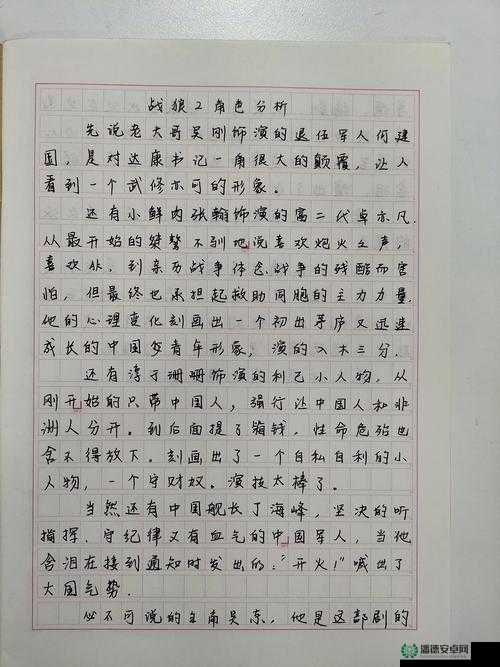 战狼2角色分析
先说老大哥吴刚饰演的退伍军人何建
国,是对达康书记一角很大的颠覆,让人
看到一个武修亦可的形象。
还有小鲜肉张翰饰演的富二代卓亦凡,
从最开始的桀骜不驯地说喜欢炮火之声,
喜欢化,到亲历战争体会战争的残酷而害
怕,但最终也承担起救助同胞的主力力量.
他的心理变化刻画出一个初出茅庐又迅速
成长的中国少青年形象,演的入木三分.
还有淳于珊珊饰演的利己小人物,从
刚开始的只带中国人,强行让中国人和非
洲人分开。到后面提了箱钱,性命危殆也
舍不得放下。刻画出了一个自私自利的小
人物,一个守财奴。演技太棒了。
当然还有中国舰长丁海峰,坚决的听
指挥.守纪律又有血气的中国军人,当他
含泪在接到通知时发出的:"开火!"喊出了
大国气势.
必不可说的主角吴京,他是这部剧的
潘德安卓网